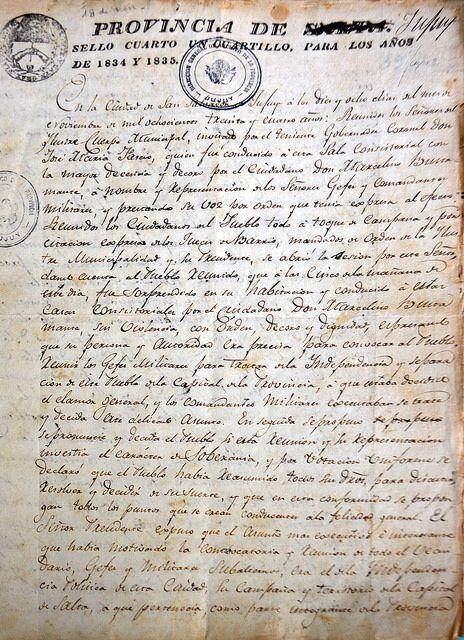 18 de nov.
PROVINCIA DE SALTA. Jujuy
SELLO CUARTO UN CUARTILLO, PARA LOS AÑOS
DE 1834 Y 1835.
En la Ciudad de San Salvador de Jujuy á los diez y ocho dias del mes de
Noviembre de mil ochocientos treinta y cuatro años: Reunidos los Señores del
Ilustre Cuerpo Municipal, por el teniente Gobernador Coronel Don
José Maria Fascio, quien fue conducido á esta Sala Consistorial con
la mayor decencia y decoro por el Ciudadano Don Marcelino Busta
mante, á nombre y Representacion de los Señores Gefes y Comandantes
Militares y prestando su voz por orden que tenia expresa al efecto
Reunidos los Ciudadanos del Pueblo todo á toque de Campana y por
citacion de los Jueces de Barrio, mandados de Orden de la Ilus
tre Municipalidad y su Presidente, se abrió la Sesion por este Señor,
dando cuenta al Pueblo Reunido, que á las Cinco de la mañana de
este dia, fue Sorprendido en su habitacion y conducido á estas
Casas Consistoriales por el ciudadano Don Marcelino Busta
mante, sin violencia, con Orden, decoro y dignidad, expresando
que su persona y Autoridad era precisa para convocar al Pueblo,
Reunir los Gefes Militares para tratar de la Independencia y separa
cion de este Pueblo de la Capital de la Provincia, á que estaba decidido
el clamor general, y los comandantes Militares se trate
y decida este delicado Asunto. En seguida se propuso
se pronuncie, y decida el Pueblo si esta Reunion y su Representacion
investia el caracter de Soberania, y por votacion uniforme se
declaró que el Pueblo habia reasumido todos sus dros, para discutir,
resolver y decidir de su suerte, y que en esta conformidad se propon
gan todos los puntos que se crean conducentes á la felicidad general. El
Señor Presidente expuso que el Asunto mas executivo é interesante
que habia motivado la Convocatoria y Reunion de todo el Vecin
dario, Gefes y Militares Subalternos, era el de la Independen
cia Politica de esta Ciudad, su Campaña y territorio de la Capital
de Salta, á que pertenecia como parte integrante de la Provincia